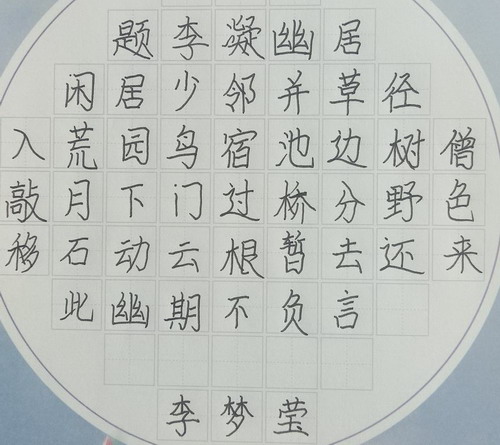 题李凝幽居
闲居少邻并草径
入荒园鸟宿池边树僧
敲月下门过桥分野色
移石动云根暂去还来
此幽期不负言
李梦莹